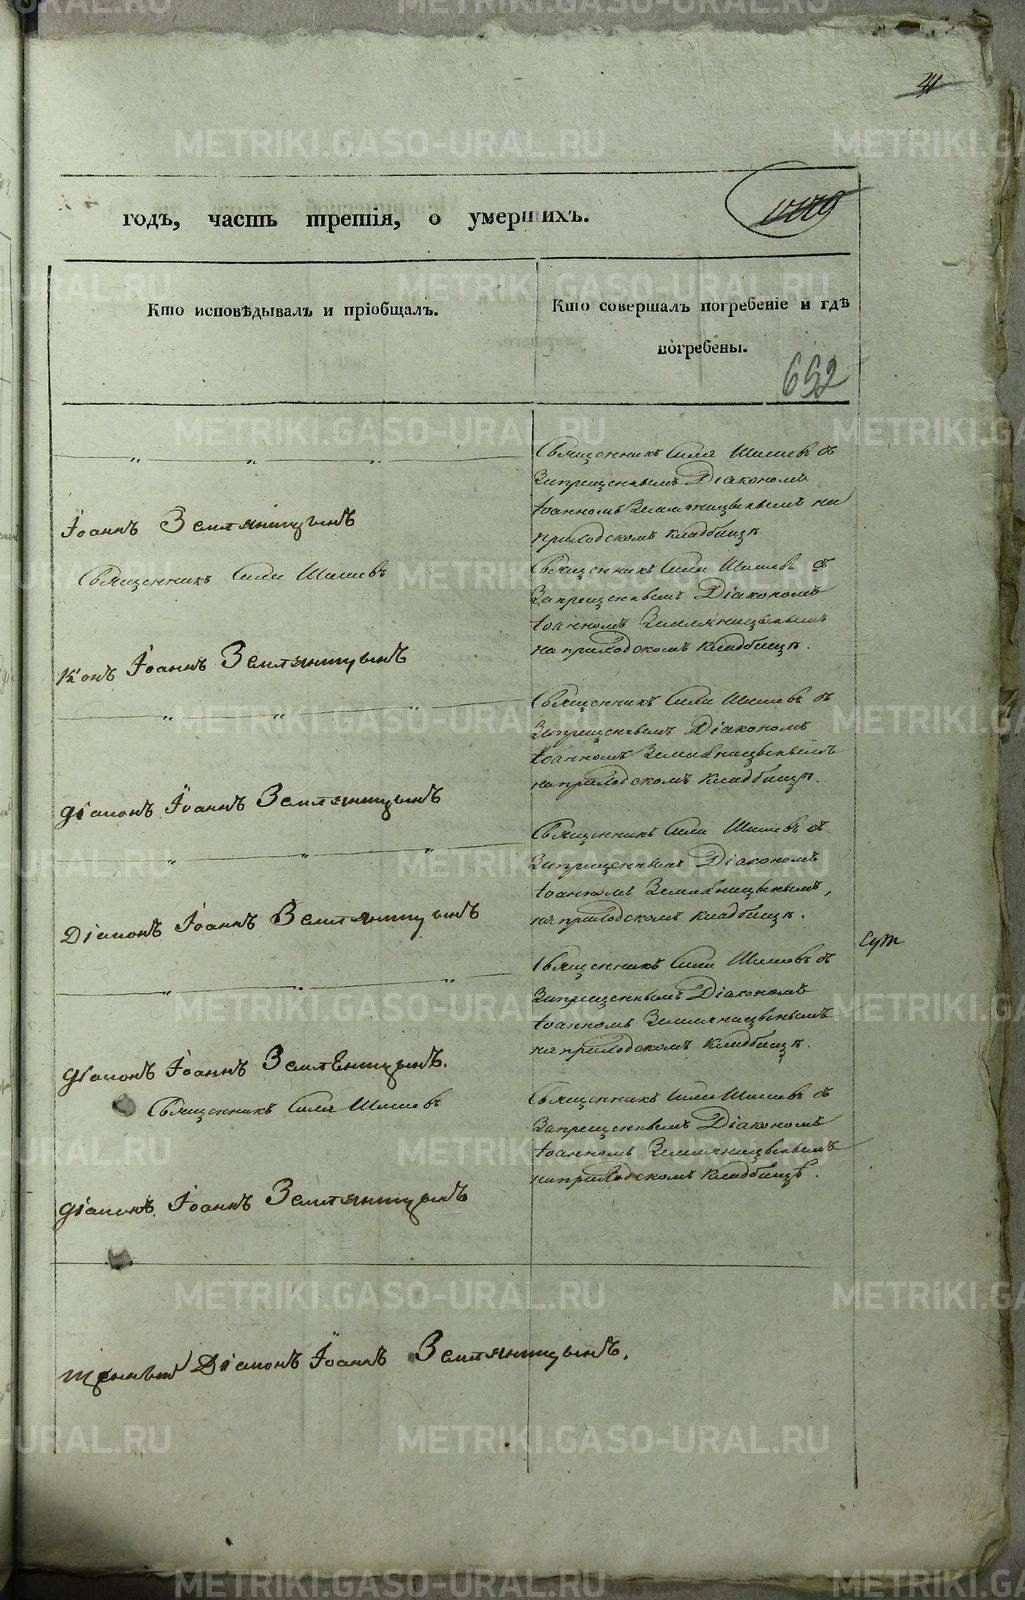 годъ, часть третія, о умершихъ.
Кто исповѣдывалъ и пріобщалъ.
Кто совершалъ погребеніе и гдѣ
погребены.
652
Священникъ Сила Шишевъ съ
Запрещеннымъ Діакономъ
Іоанномъ Земляницынымъ на
приходскомъ кладбищѣ
Іоаннъ Земляницынъ
Священникъ Сила Шишевъ
Священникъ Сила Шишевъ съ
Запрещеннымъ Діакономъ
Іоанномъ Земляницынымъ
на приходскомъ кладбищѣ.
конъ Іоаннъ Земляницынъ
Священникъ Сила Шишевъ съ
Запрещеннымъ Діакономъ
Іоанномъ Земляницынымъ
на приходскомъ кладбищѣ.
діаконъ Іоаннъ Земляницынъ
Священникъ Сила Шишевъ съ
Запрещеннымъ Діакономъ
Іоанномъ Земляницынымъ,
на приходскомъ кладбищѣ.
Діаконъ Іоаннъ Земляницынъ
Священникъ Сила Шишевъ съ
Запрещеннымъ Діакономъ
Іоанномъ Земляницынымъ
на приходскомъ кладбищѣ.
діаконъ Іоаннъ Земленицынъ.
Священникъ Сила Шишевъ
Священникъ Сила Шишевъ съ
Запрещеннымъ Діакономъ
Іоанномъ Земляницынымъ
на приходскомъ кладбищѣ.
діаконъ Іоаннъ Земляницынъ
щенный Діаконъ Іоаннъ Земляницынъ.
METRIKI.GASO-URAL.RU